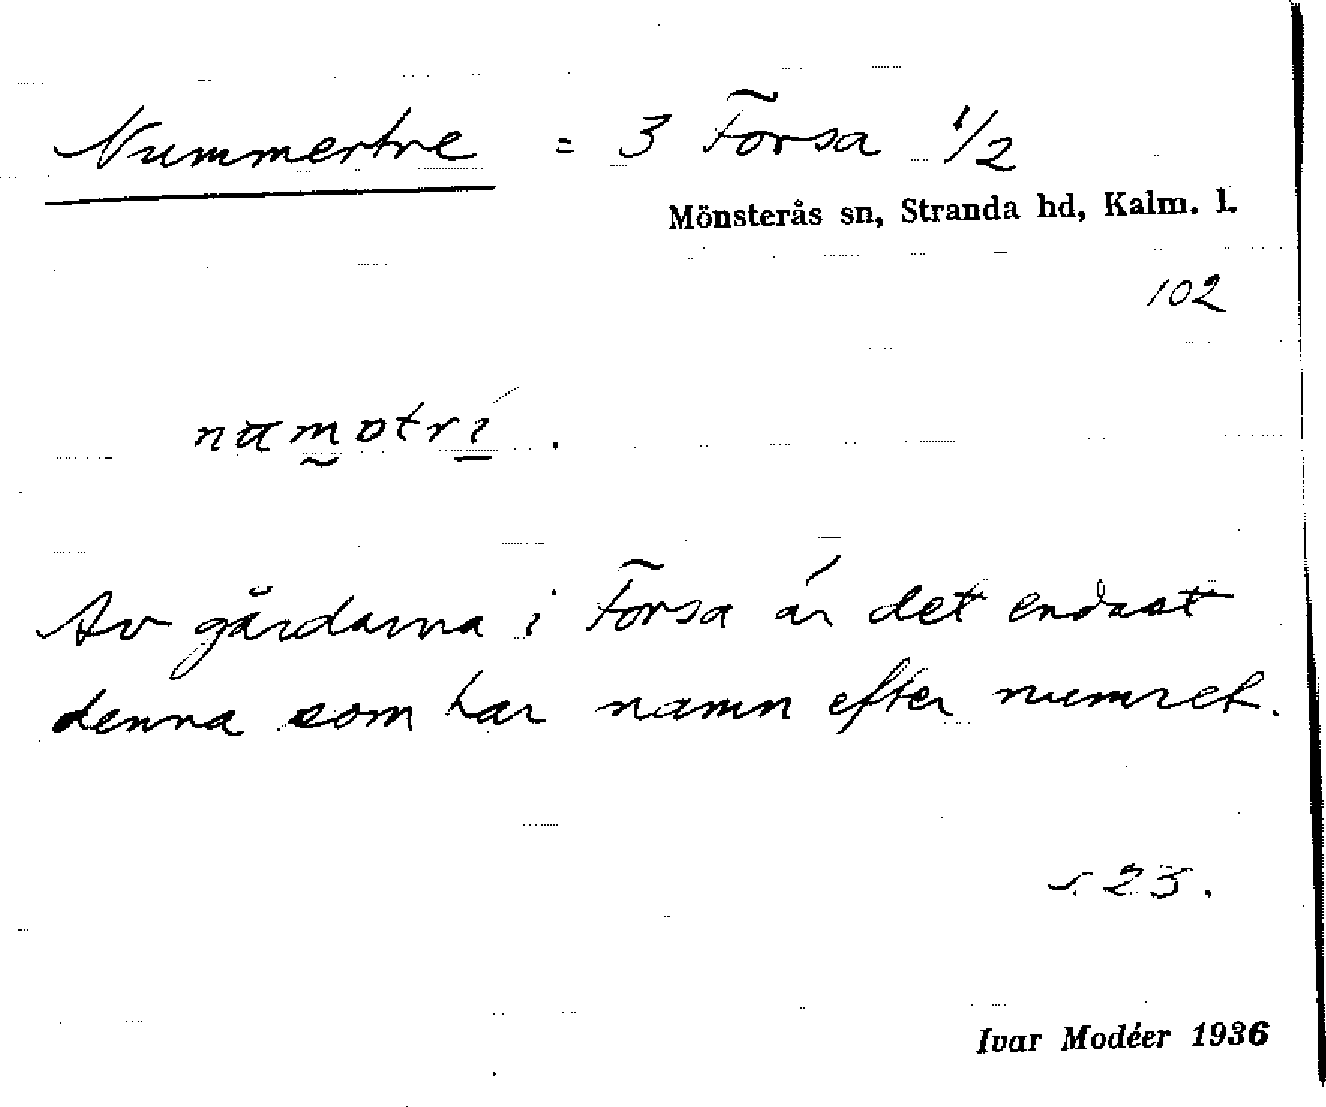 Nummertre = 3 Forsa 1/2
Mönsterås sn, Stranda hd, Kalm. l.
102
namotri.
Av gårdarna i Forsa är det endast
denna som har namn efter numret.
s. 23.
Ivar Modéer 1936